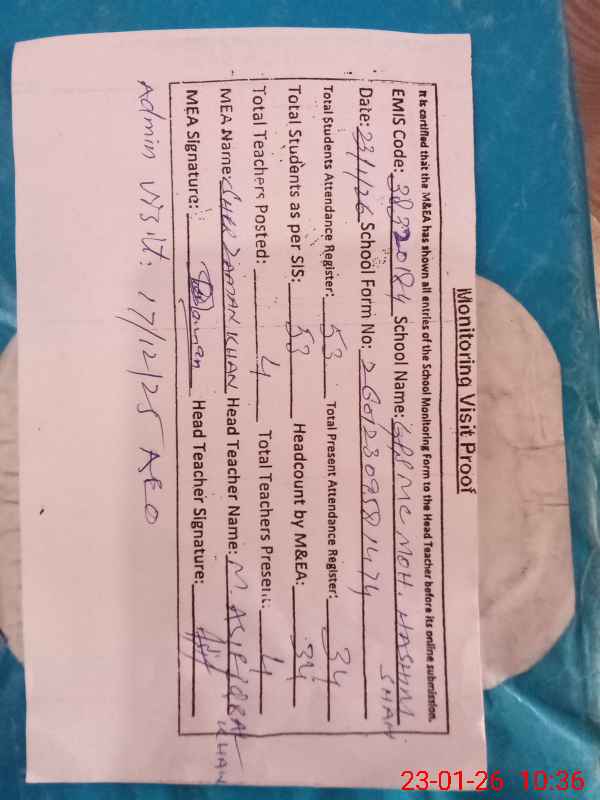 Monitoring Visit Proof
It is certified that the M&EA has shown all entries of the School Monitoring Form to the Head Teacher before its online submission.
EMIS Code: 38320184 School Name: GPS MC MOH. HASHIM SHAH
Date: 23/1/26 School Form No: 26012309581474
Total Students Attendance Register: 53 Total Present Attendance Register: 34
Total Students as per SIS: 53 Headcount by M&EA: 34
Total Teachers Posted: 4 Total Teachers Present: 4
MEA Name: SHER ZAMAN KHAN Head Teacher Name: M. ASIF IQBAL KHAN
MEA Signature: Head Teacher Signature:
Admin Visit: 17/12/25 AEO
23-01-26 10:36